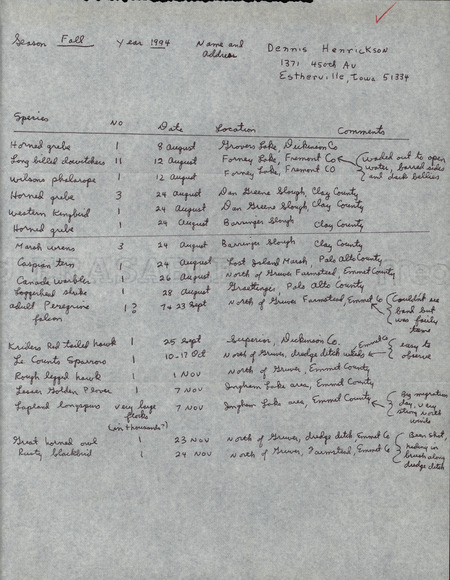 Season Fall Year 1994 Name and address Dennis Henrickson
1371 450th Av
Estherville, Iowa 51334
Species NO Date Location Comments
Horned grebe 1 8 August Grovers Lake, Dickinson Co
Long billed dowitchers 11 12 August Forney Lake, Fremont Co waded out to open water, barred sides and dark bellies
Wilsons phalarope 1 12 August Forney Lake, Fremont CO
Horned grebe 3 24 August Dan Greene Slough, Clay County
Western Kingbird 1 24 August Dan Greene Slough, Clay County
Horned grebe 1 24 August Barringer Slough Clay County
Marsh wrens 3 24 August Barringer Slough Clay County
Caspian tern 1 24 August Lost Island Marsh, Palo Alto County
Canada warbler 1 26 August North of Gruver Farmstead, Emmet County
Loggerhead shrike 1 28 August Graettinger, Palo Alto County
adult Peregrine falcon 1? 7 + 23 Sept North of Gruver Farmstead, Emmet Co Couldn't see band but was fairly tame
Kriders Red tailed hawk 1 25 Sept Superior, Dickinson Co.
Le Conte Sparrows 1 10-17 Oct North of Gruver, dredge ditch Emmet Co easy to observe
Rough legged hawk 1 1 NOV North of Gruver, Emmet County
Lesser Golden Plover 1 7 NOV Ingham Lake area, Emmet County
Lapland longspurs very large flocks (in thousands?) 7 NOV Ingham Lake area, Emmet County Big migration day, very strong North winds
Great horned owl 1 23 NOV North of Gruver, dredge ditch Emmet Co Been shot, hiding in brush along dredge ditch
Rusty blackbird 1 24 NOV North of Gruver, Farmstead, Emmet Co